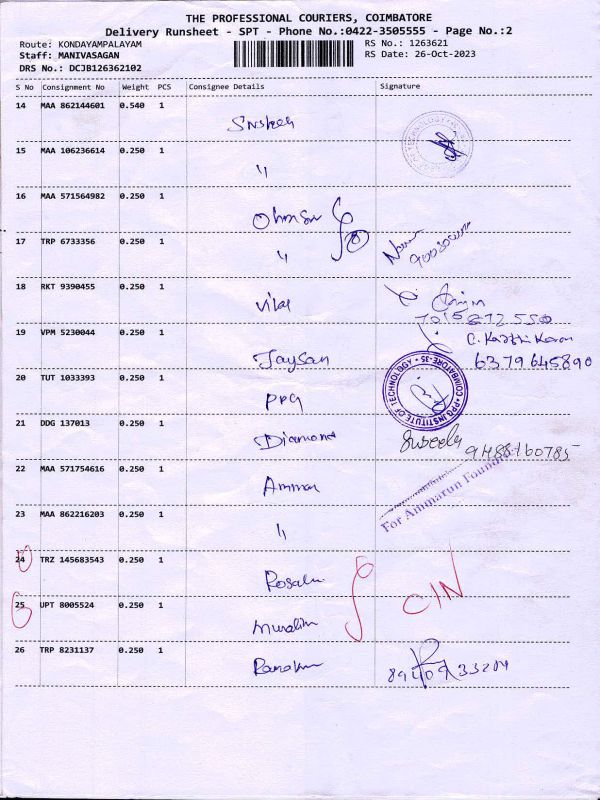 THE PROFESSIONAL COURIERS, COIMBATORE
Delivery Runsheet - SPT - Phone No.:0422-3505555 - Page No.:2
Route: KONDAYAMPALAYAM RS No.: 1263621
Staff: MANIVASAGAN RS Date: 26-Oct-2023
DRS No.: DCJB126362102
S No Consignment No Weight PCS Consignee Details Signature
14 MAA 862144601 0.540 1
15 MAA 106236614 0.250 1 "
16 MAA 571564982 0.250 1
17 TRP 6733356 0.250 1 "
18 RKT 9390455 0.250 1 Vilas
7015872550
19 VPM 5230044 0.250 1 Jaysan C. Karthikeran
6379645890
20 TUT 1033393 0.250 1 PPG PPG INSTITUTE OF TECHNOLOGY COIMBATORE-35
21 DDG 137013 0.250 1 Diamond Suseela 9488160785
22 MAA 571754616 0.250 1 Ammar
For Ammarun
23 MAA 862216203 0.250 1 "
24 TRZ 145683543 0.250 1 C/N
25 UPT 8005524 0.250 1
26 TRP 8231137 0.250 1